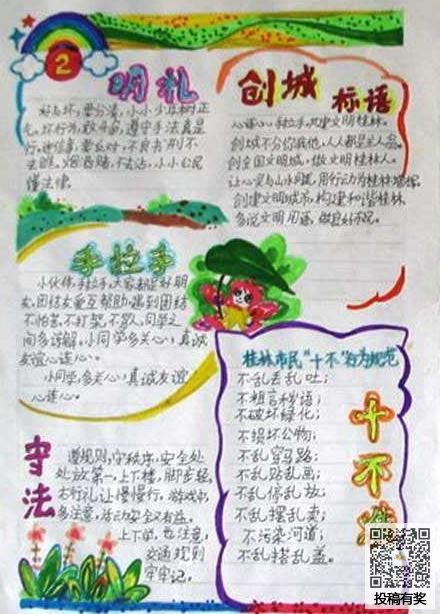 2
明礼
好与坏,要分清,小小少年树正
气。坏行为,敢斗争,遵守手法真是
行。迷信事,要反对,不良书刊不
去瞧。烟酒赌,不去沾,小小公民
懂法律。
创城
标语
心连心,手拉手,共建文明桂林。
创城不分你我他,人人都是主人翁。
创全国文明城,做文明桂林人。
让心灵与山水同美,用行动为桂林增辉。
创建文明城市,构建和谐桂林
多说文明用语,做君好市民。
手拉手
小伙伴,手拉手,大家都是好朋
友,团结友爱互帮助,遇到困难
不怕苦,不打架,不骂人,同学之
间多谅解。小同学多关心,真诚
友谊心连心。
小同学,多关心,真诚友谊
心连心。
桂林市民"十不"行为规范
不乱丢乱吐;
不粗言秽语;
不破坏绿化;
不损坏公物;
不乱穿马路;
不乱贴乱画;
不乱停乱放;
不乱摆乱卖;
不污染河道;
不乱搭乱盖。
十不准
守法
遵规则,守秩序,安全处
处放第一,上下楼,脚步轻,
右行礼让慢慢行,游戏中,
多注意,活动安全又有益。
上下学,也注意,
交通规则
牢牢记。
投稿有奖